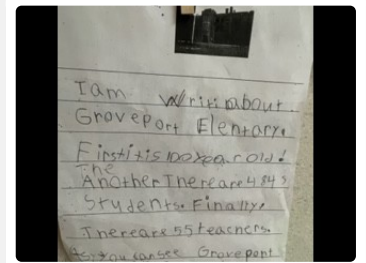 I am Writi about
Groveport Elentary.
First it is 100 year old!
The
Another There are 484
Students. Finally,
There are 55 teachers.
As you can see Groveport